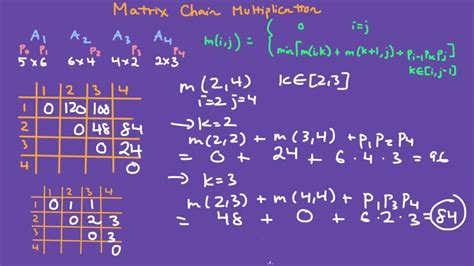 Matrix Chain Multiplication
A₁ A₂ A₃ A₄
P₀ P₁ P₂ P₃ P₄
5×6 6×4 4×2 2×3
m(i,j) = { 0 i=j
min{m(i,k) + m(k+1,j) + Pᵢ₋₁PₖPⱼ}
k∈[i,j-1]
1 2 3 4
1 0 120 108
2 0 48 84
3 0 24
4 0
1 2 3 4
1 0 1 1
2 0 2 3
3 0 3
4 0
m(2,4) k∈[2,3]
i=2 j=4
→ k=2
m(2,2) + m(3,4) + P₁P₂P₄
= 0 + 24 + 6·4·3 = 96
→ k=3
m(2,3) + m(4,4) + P₁P₃P₄
= 48 + 0 + 6·2·3 = 84